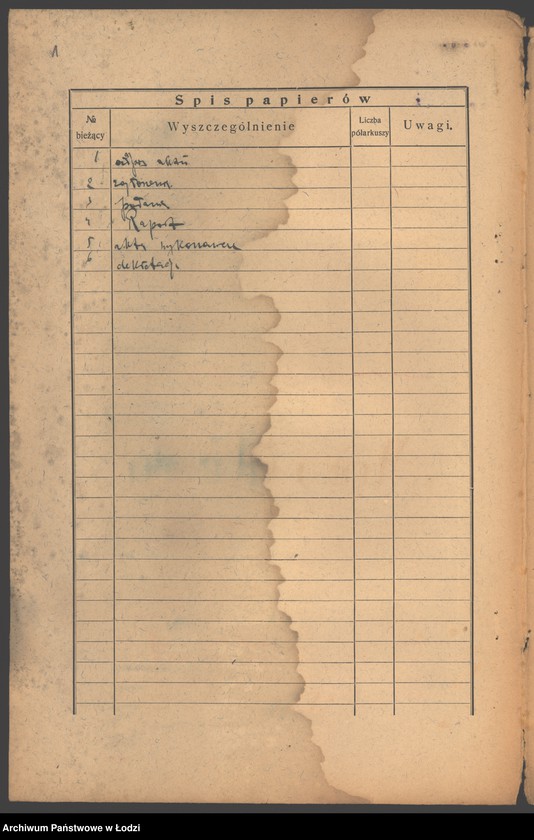 1
Spis papierów
№ bieżący
Wyszczególnienie
Liczba półarkuszy
Uwagi.
1 odpis aktu
2
3 podanie
4 Raport
5 akta wykonawcze
6
Archiwum Państwowe w Łodzi